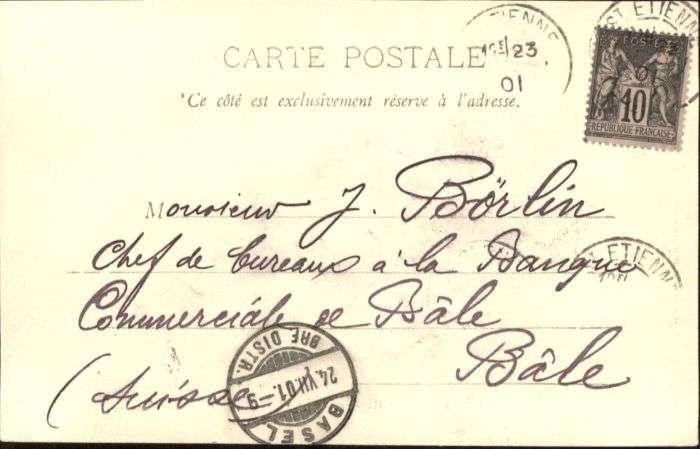 CARTE POSTALE
Ce côté est exclusivement réservé à l'adresse.
ST ETIENNE
23
01
POSTES
10
RÉPUBLIQUE FRANÇAISE
Monsieur J. Börlin
Chef de bureaux à la Banque
Commerciale de Bâle
Bâle
(Suisse)
ETIENNE
BRF. DISTR.
24.VII.01.-9
BASEL